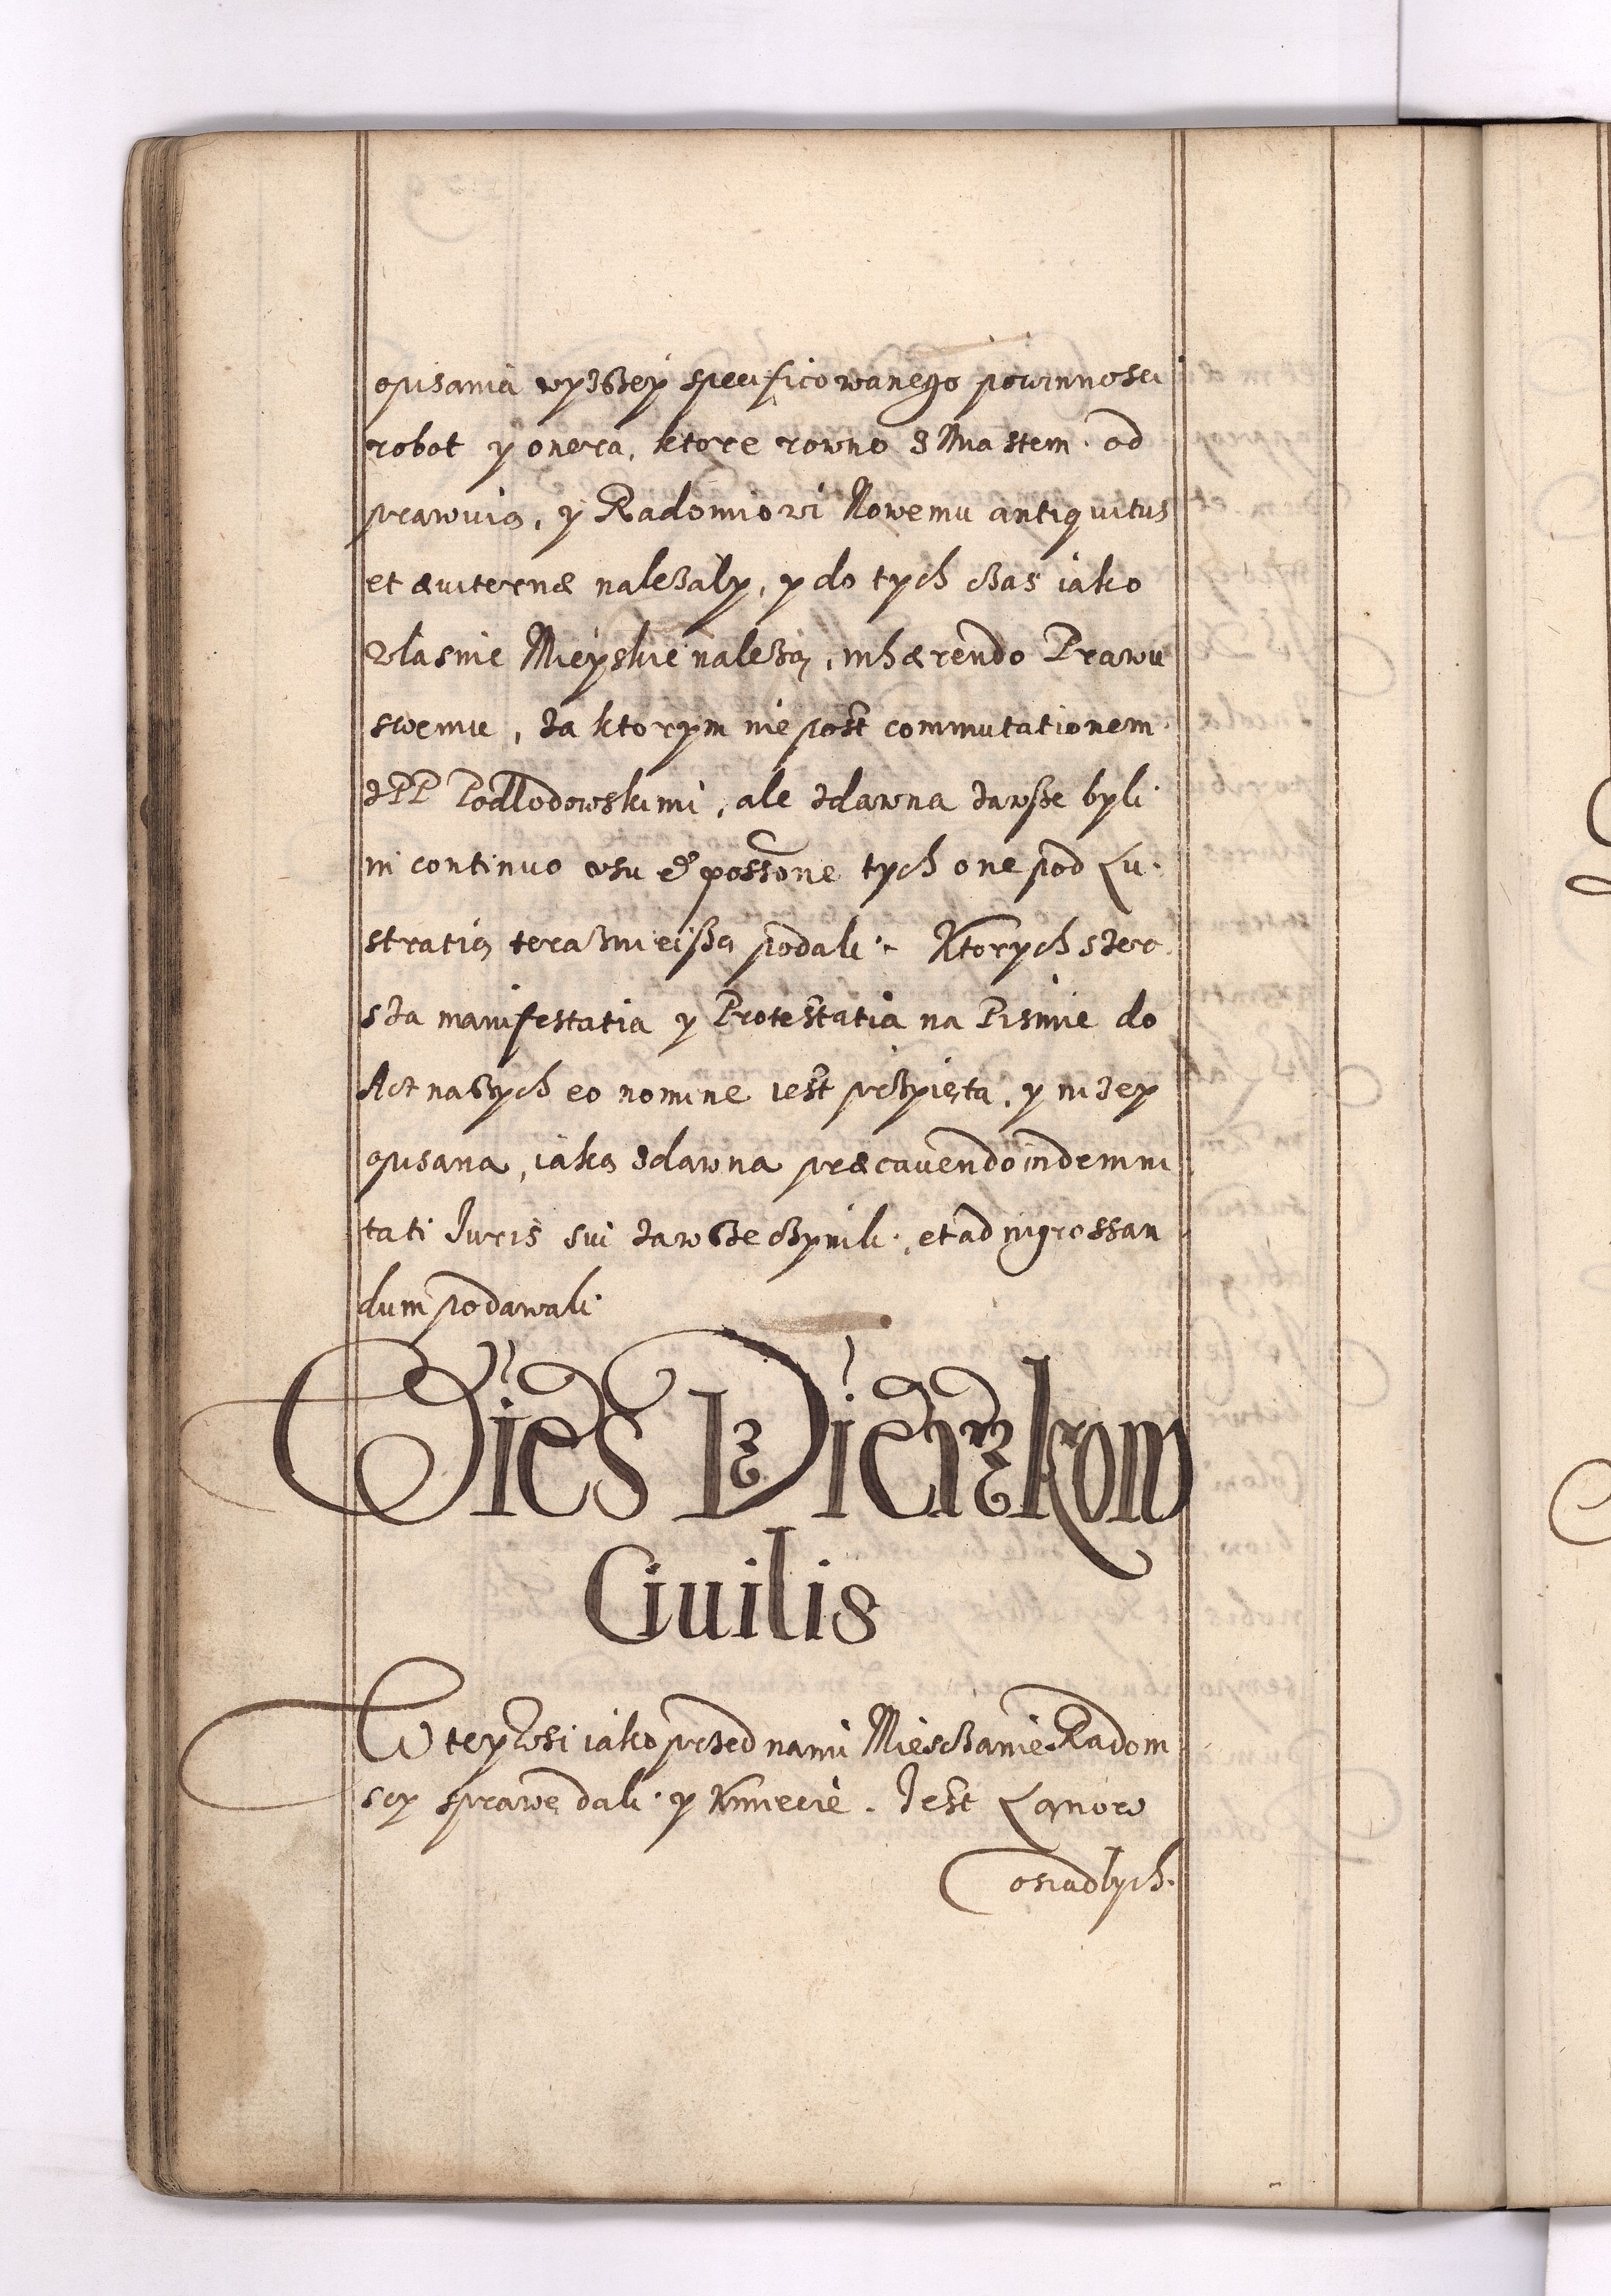 opisania wyzszey specificowanego powinnosci
robot y onera, ktore rowno z Miastem od
prawuią, y Radomiowi Nowemu antiquitus
et æviternæ nalezały, y do tych czas iako
własnie Mieyskie nalezą, inhærendo Prawu
swemu, za ktorym nie post commutationem
z PP Podlodowskimi, ale zdawna zawsze byli
in continuo usu & possone tych one pod Lu-
stratią teraznieiszą podali. Ktorych szero
sza manifestatia y Protestatia na Pismie do
Act naszych eo nomine iest przypięta, y nizey
opisana, iaką zdawna præcavendo indemni
tati Juris sui zawsze czynili, et ad ingrossan
dum podawali.
Wies Dzierzkow
Civilis
W tey Wsi iako przed nami Mieszczanie Radom
scy sprawę dali y Kmiecie. Jest Łanow
osiadłych.